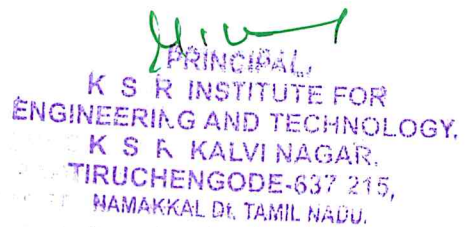 PRINCIPAL,
K S R INSTITUTE FOR
ENGINEERING AND TECHNOLOGY.
K S R KALVI NAGAR,
TIRUCHENGODE-637 215,
NAMAKKAL Dt. TAMIL NADU.